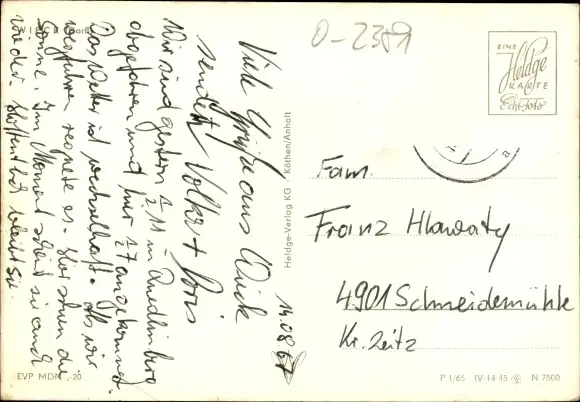 O-2389
EINE
Heldge
KARTE
Echt-Foto
Viele Grüße aus Wieck
sendet Volker + Doris
14.08.67
Wir sind gestern ½ 11 in Quedlinburg
abgefahren und hier 17 angekommen.
Das Wetter ist wechselhaft. Als wir
wegfuhren regnete es. Hier schien die
Sonne. Im Moment scheint sie auch
wieder. Hoffentlich bleibt sie.
Heldge-Verlag KG Köthen/Anhalt
Fam.
Franz Hlawaty
4901 Schneidemühle
Kr. Zeitz
EVP MDN -,20
P 1/65 IV-14-45 N 7500